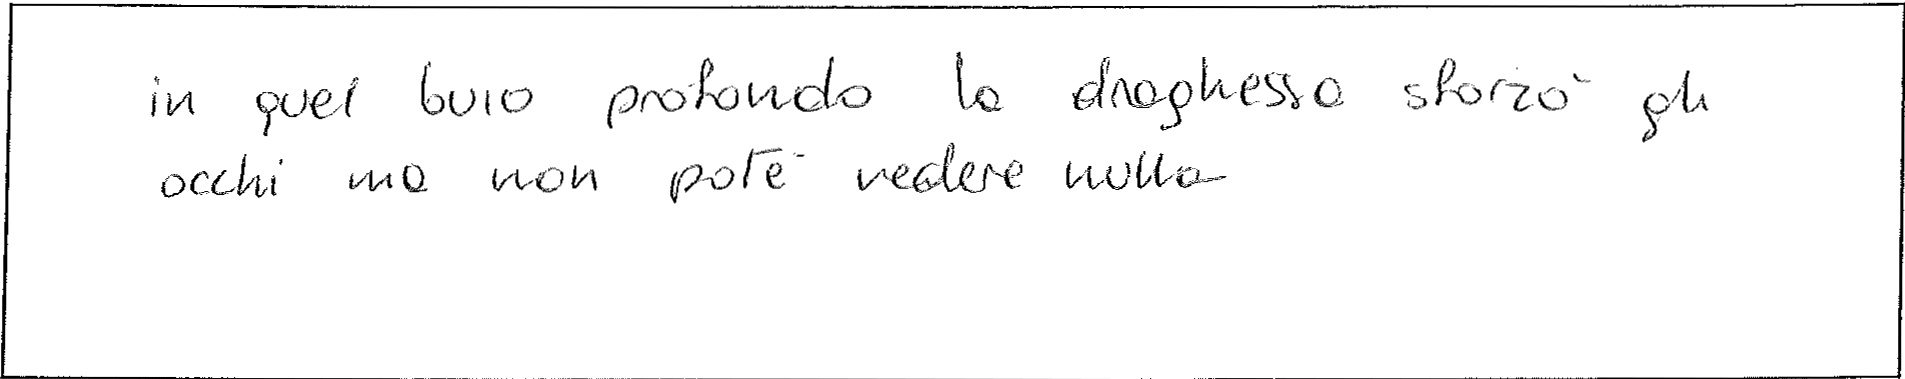 in quel buio profondo la draghessa sforzò gli
occhi ma non poté vedere nulla